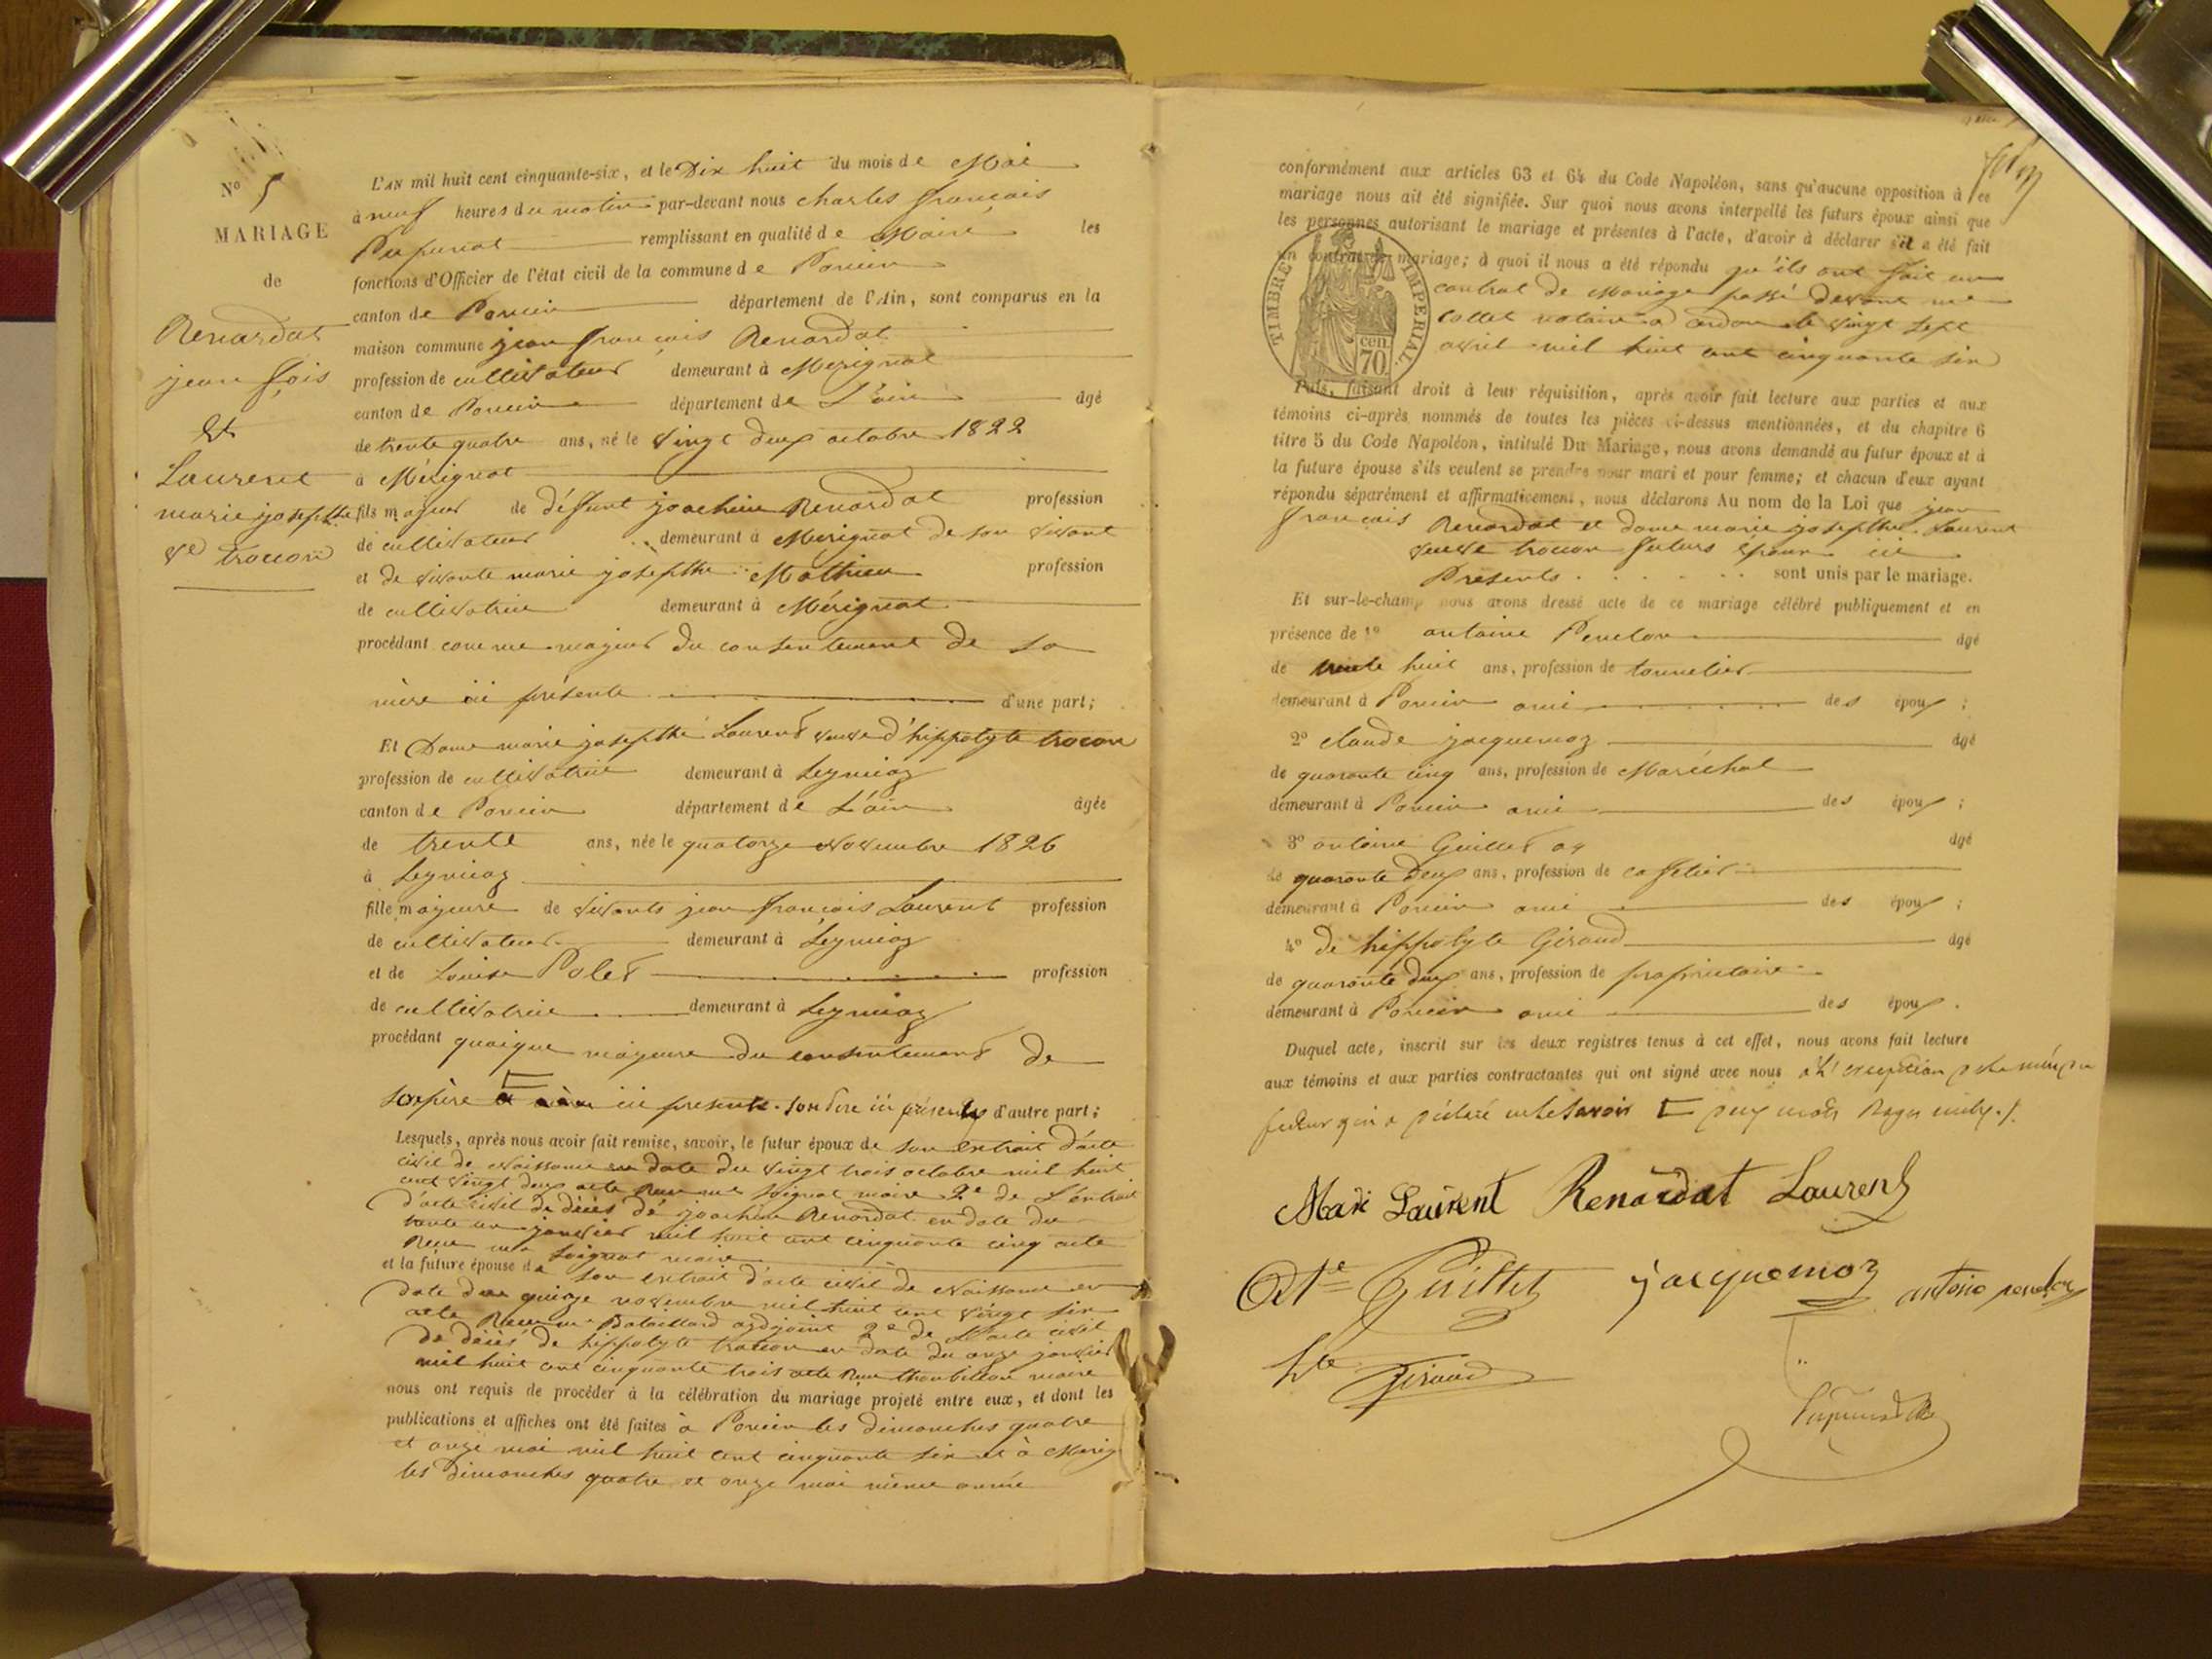 N° 5
MARIAGE
de
Renardat
jean fçois
Et
Laurent
marie josephte
Ve trocon
L'AN mil huit cent cinquante-six, et le Dix huit du mois de Mai
à neuf heures du matin par-devant nous charles françois
remplissant en qualité de Maire les
fonctions d'Officier de l'état civil de la commune de Poncin
canton de Poncin département de l'Ain, sont comparus en la
maison commune jean françois Renardat
profession de cultivateur demeurant à Mérignat
canton de Poncin département de L'ain âgé
de trente quatre ans, né le vingt deux octobre 1822
à Mérignat
fils majeur de défunt joachim Renardat profession
de cultivateur demeurant à Mérignat de son vivant
et de vivante marie josephte Mathieu profession
de cultivatrice demeurant à Mérignat
procédant comme majeur du consentement de sa
mère ici présente d'une part;
Et Dame marie josephte Laurent veuve d'hippolyte trocon
profession de cultivatrice demeurant à Leymiaz
canton de Poncin département de L'ain âgée
de trente ans, née le quatorze novembre 1826
à Leymiaz
fille majeure de vivants jean françois Laurent profession
de cultivateur demeurant à Leymiaz
et de Louise Polet profession
de cultivatrice demeurant à Leymiaz
procédant quoique majeure du consentement de
son père ici présents d'autre part;
Lesquels, après nous avoir fait remise, savoir, le futur époux de son extrait d'acte
civil de naissance en date du vingt trois octobre mil huit
cent vingt deux acte Reçu me Soignat maire 2e de L'extrait
d'acte civil de décès de joachim Renardat en date du
trente un janvier mil huit cent cinquante cinq acte
Reçu me Soignat maire
et la future épouse de son extrait d'acte civil de naissance en
date du quinze novembre mil huit cent vingt six
acte Reçu me Bataillard adjoint 2e de L'acte civil
de décès de hippolyte trocon en date du onze janvier
mil huit cent cinquante trois acte Reçu maire
nous ont requis de procéder à la célébration du mariage projeté entre eux, et dont les
publications et affiches ont été faites à Poncin les dimanches quatre
et onze mai mil huit cent cinquante six et à Mérig
les dimanches quatre et onze mai même année
conformément aux articles 63 et 64 du Code Napoléon, sans qu'aucune opposition à ce
mariage nous ait été signifiée. Sur quoi nous avons interpellé les futurs époux ainsi que
les personnes autorisant le mariage et présentes à l'acte, d'avoir à déclarer s'il a été fait
un contrat de mariage; à quoi il nous a été répondu qu'ils ont fait un
contrat de Mariage passé devant me
Collet notaire a cerdon le vingt sept
avril mil huit cent cinquante six
TIMBRE IMPERIAL
cen.
70
Puis, faisant droit à leur réquisition, après avoir fait lecture aux parties et aux
témoins ci-après nommés de toutes les pièces ci-dessus mentionnées, et du chapitre 6
titre 5 du Code Napoléon, intitulé Du Mariage, nous avons demandé au futur époux et à
la future épouse s'ils veulent se prendre pour mari et pour femme; et chacun d'eux ayant
répondu séparément et affirmativement, nous déclarons Au nom de la Loi que jean
françois Renardat et dame marie josephte Laurent
veuve trocon futurs époux ici
Présents sont unis par le mariage.
Et sur-le-champ nous avons dressé acte de ce mariage célébré publiquement et en
présence de 1° antoine Penelon âgé
de trente huit ans, profession de tonnelier
demeurant à Poncin ami des époux ;
2° claude jacquemoz âgé
de quarante cinq ans, profession de Maréchal
demeurant à Poncin ami des époux ;
3° antoine Guillet âgé
de quarante deux ans, profession de caffetier
demeurant à Poncin ami des époux ;
4° de hippolyte Giraud âgé
de quarante deux ans, profession de propriétaire
demeurant à Poncin ami des époux.
Duquel acte, inscrit sur les deux registres tenus à cet effet, nous avons fait lecture
aux témoins et aux parties contractantes qui ont signé avec nous à L'exception de la mère du
futur qui a déclaré ne le savoir deux mots Rayés nuls
Marie Laurent Renardat Laurent
Ate Guillet jacquemoz antoine penelon
hte Giraud